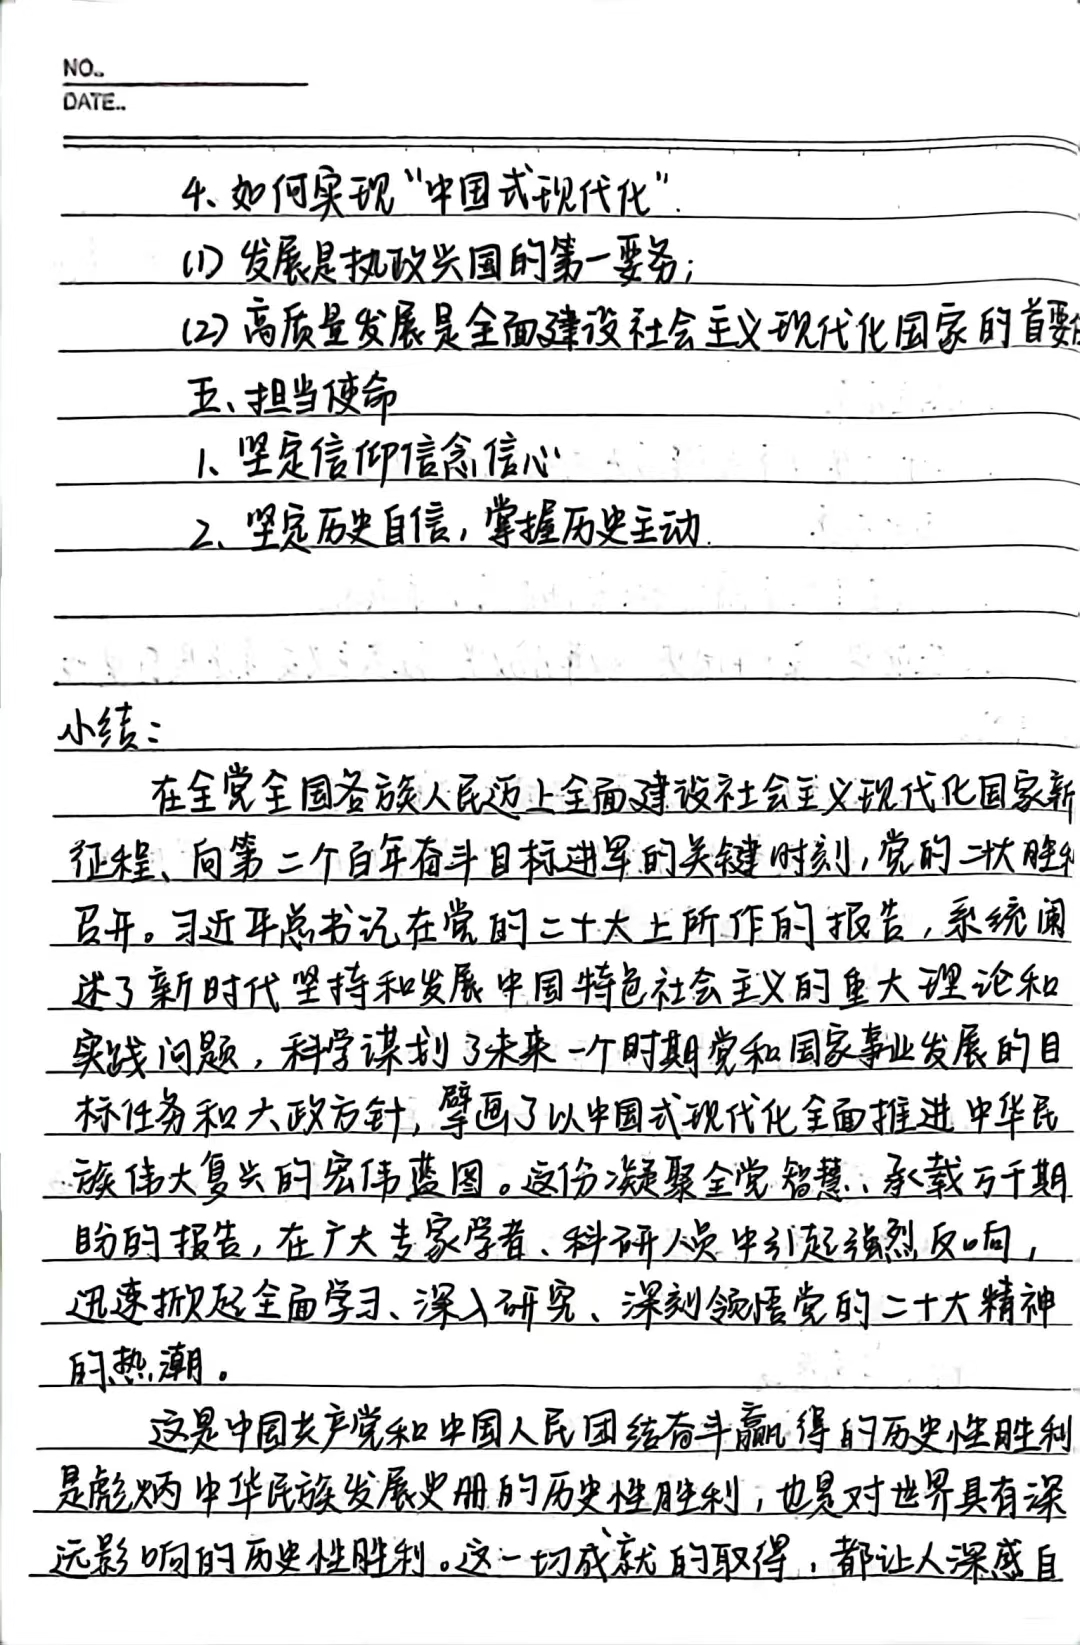 NO..
DATE..
4、如何实现“中国式现代化”.
(1) 发展是执政兴国的第一要务;
(2) 高质量发展是全面建设社会主义现代化国家的首要
五、担当使命
1、坚定信仰信念信心
2、坚定历史自信,掌握历史主动.
小结:
在全党全国各族人民迈上全面建设社会主义现代化国家新
征程、向第二个百年奋斗目标进军的关键时刻,党的二十大胜利
召开。习近平总书记在党的二十大上所作的报告,系统阐
述了新时代坚持和发展中国特色社会主义的重大理论和
实践问题,科学谋划了未来一个时期党和国家事业发展的目
标任务和大政方针,擘画了以中国式现代化全面推进中华民
族伟大复兴的宏伟蓝图。这份凝聚全党智慧、承载万千期
盼的报告,在广大专家学者、科研人员中引起强烈反响,
迅速掀起全面学习、深入研究、深刻领悟党的二十大精神
的热潮。
这是中国共产党和中国人民团结奋斗赢得的历史性胜利
是彪炳中华民族发展史册的历史性胜利,也是对世界具有深
远影响的历史性胜利。这一切成就的取得,都让人深感自